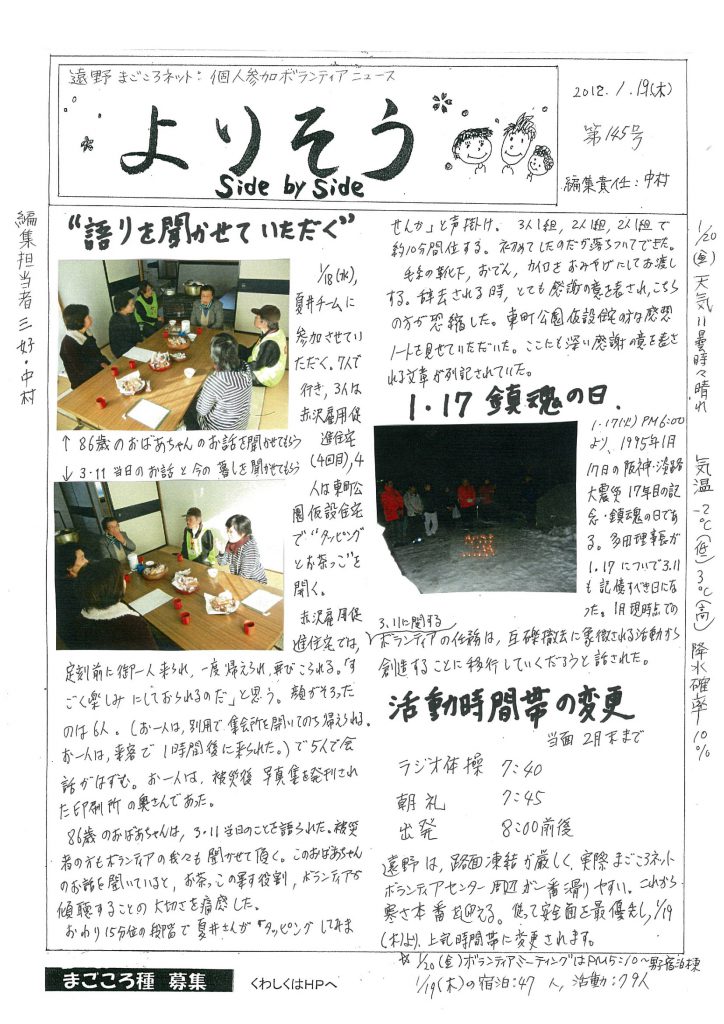 遠野まごころネット：個人参加ボランティアニュース
よりそう
Side by Side
2012.1.19(木)
第145号
編集責任：中村
編集担当者 三好・中村
1/20(金)天気＝曇時々晴れ 気温-2℃(低)3℃(高)降水確率10%
"語りを聞かせていただく"
1/18(水),
夏井チームに
参加させてい
ただく。7人で
行き,3人は
赤沢雇用促
進住宅
(4回目),4
人は東町公
園仮設住宅
で"タッピング
とお茶っこ"を
開く。
赤沢雇用促
進住宅では,
↑86歳のおばあちゃんのお話を聞かせてもらう
↓3・11当日のお話と今の暮しを聞かせてもらう
定刻前に御一人来られ,一度帰えられ,再びこられる。「す
ごく楽しみにしておられるのだ」と思う。顔がそろった
のは6人。(お一人は,別用で集会所を開いてのち帰えられる。
お一人は,来客で1時間後に来られた。)で5人で会
話がはずむ。お一人は,被災後写真集を発刊され
た印刷所の奥さんであった。
86歳のおばあちゃんは,3・11当日のことを語られた。被災
者の方もボランティアの我々も聞かせて頂く。このおばあちゃん
のお話を聞いていると,お茶っこの果す役割,ボランティアが
傾聴することの大切さを痛感した。
おわり15分位の段階で夏井さんが「タッピングしてみま
せんか」と声掛け。3人1組,2人1組,2人1組で
約10分間位する。初めてしたのだが落ちついてできた。
毛糸の靴下,おでん,カイロをおみやげにしてお渡し
する。辞去される時,とても感謝の意を表され,こちら
の方が恐縮した。東町公園仮設住宅の方は感想
ノートを見せていただいた。ここにも深い感謝の意を表さ
れる文章が列記されていた。
1・17 鎮魂の日.
1・17(火)PM6:00
より,1995年1月
17日の阪神・淡路
大震災17年目の記
念・鎮魂の日であ
る。多田理事長が
1.17について3.11
も記憶すべき日にな
った。1月現時点での
3.11に関する
ボランティアの任務は,瓦礫撤去に象徴される活動から
創造することに移行していくだろうと話された。
活動時間帯の変更
当面 2月末まで
ラジオ体操 7:40
朝礼 7:45
出発 8:00前後
遠野は,路面凍結が厳しく,実際まごころネット
ボランティアセンター周辺が一番滑りやすい。これから
寒さ本番を迎える。従って安全面を最優先し,1/19
(木)より,上記時間帯に変更されます。
☆1/20(金)ボランティアミーティングはPM5:10~男子宿泊棟
1/19(木)の宿泊:47人,活動:79人
まごころ種 募集
くわしくはHPへ